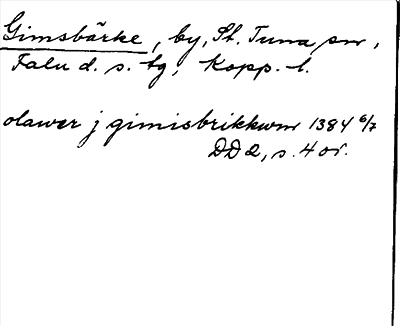 Gimsbärke, by, St. Tuna sn,
Falu d. s. tg, Kopp. l.
olawer j gimisbrikkum 1384 6/7
DD 2, s. 4 or.